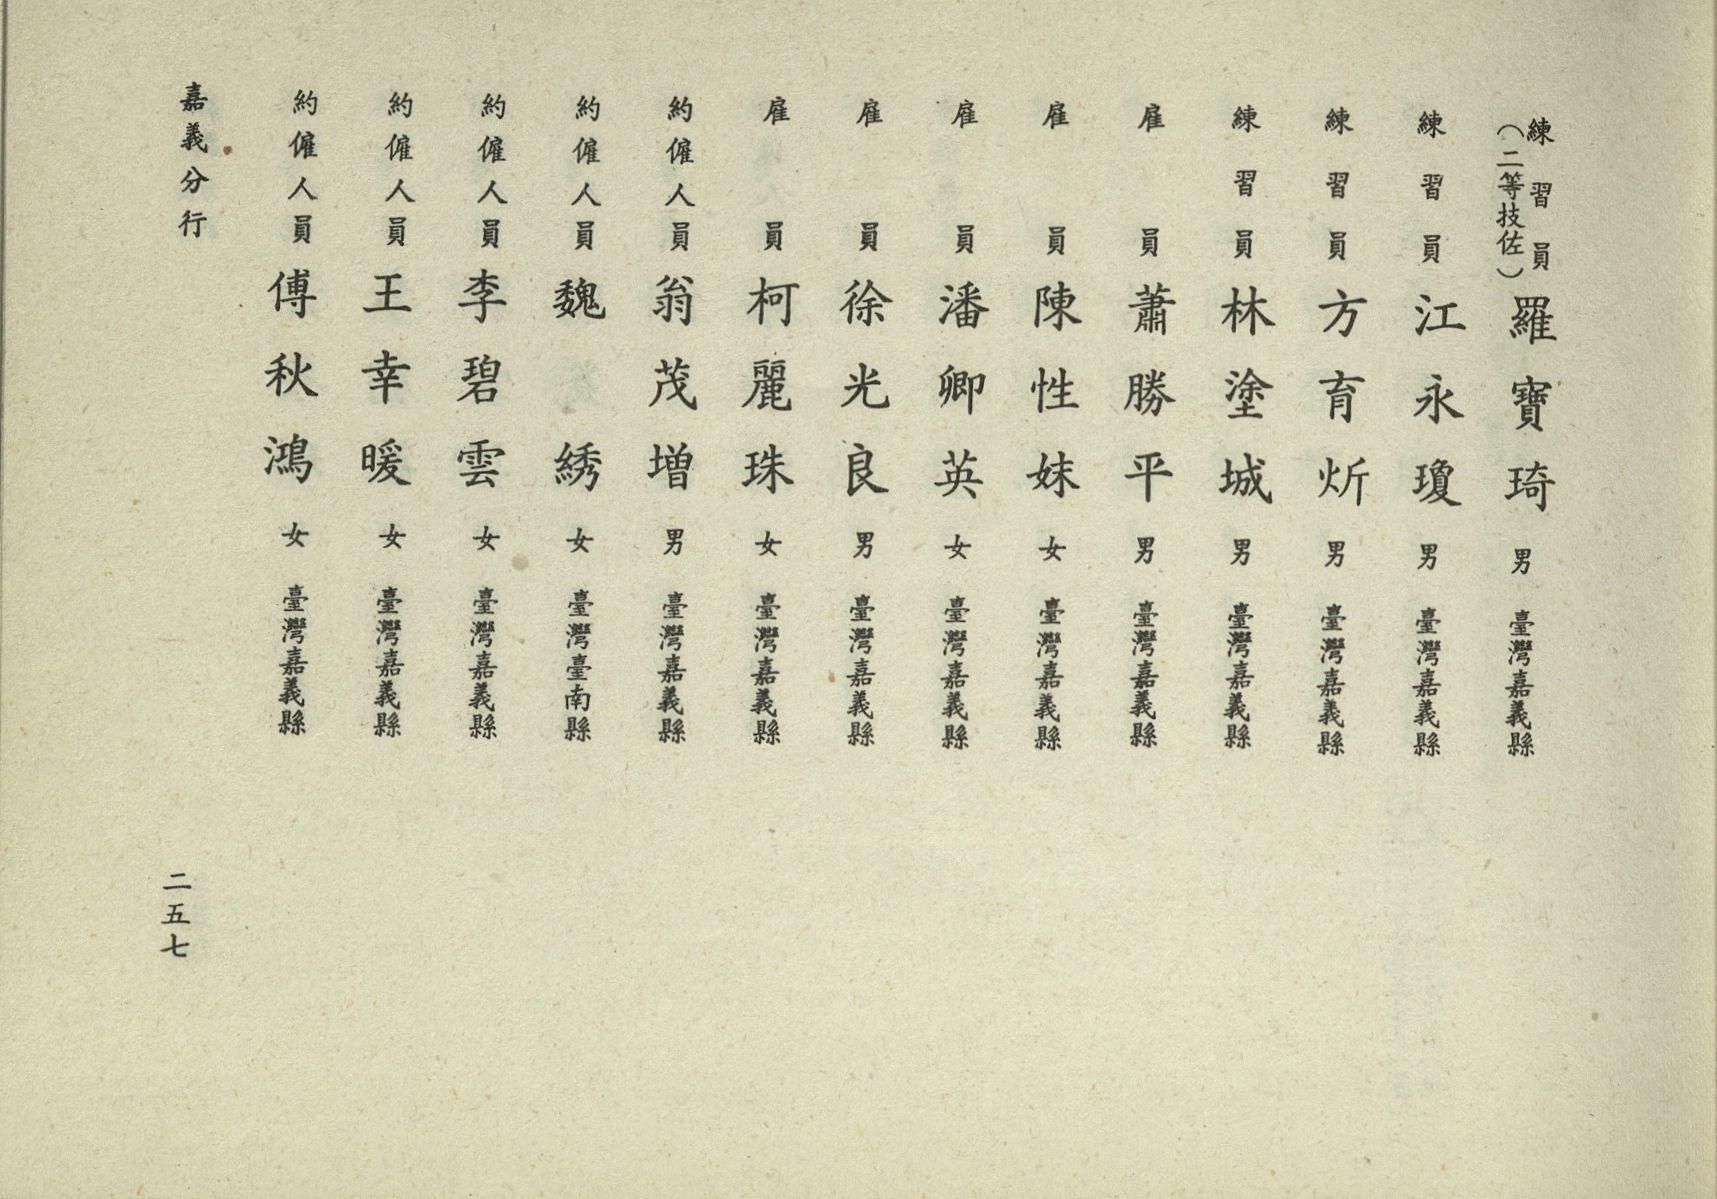 練習員（二等技佐）羅寶琦男臺灣嘉義縣
練習員江永瓊男臺灣嘉義縣
練習員方育炘男臺灣嘉義縣
練習員林塗城男臺灣嘉義縣
雇員蕭勝平男臺灣嘉義縣
雇員陳性妹女臺灣嘉義縣
雇員潘卿英女臺灣嘉義縣
雇員徐光良男臺灣嘉義縣
雇員柯麗珠女臺灣嘉義縣
約僱人員翁茂增男臺灣嘉義縣
約僱人員魏綉女臺灣臺南縣
約僱人員李碧雲女臺灣嘉義縣
約僱人員王幸暖女臺灣嘉義縣
約僱人員傅秋鴻女臺灣嘉義縣
嘉義分行
二五七